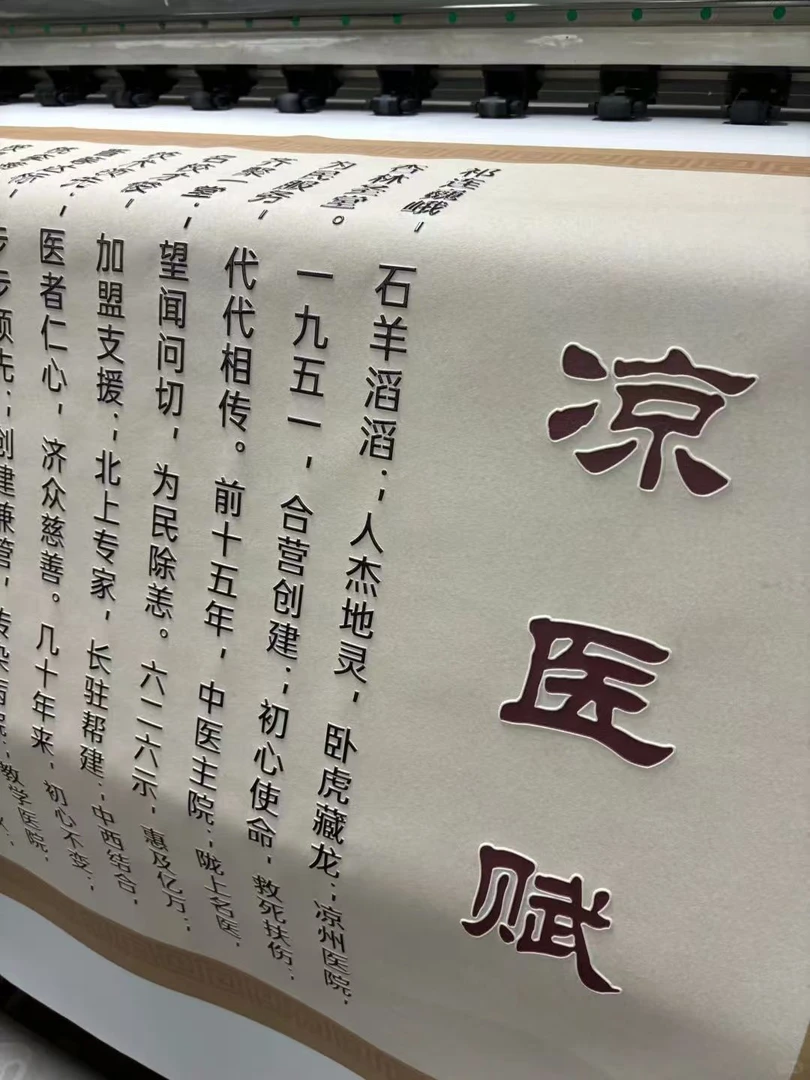 凉医赋
祁连巍峨，石羊滔滔；人杰地灵，卧虎藏龙；凉州医院，
一九五一，合营创建；初心使命，救死扶伤；
代代相传。前十五年，中医主院；陇上名医，
望闻问切，为民除恙。六二六示，惠及亿万；
加盟支援；北上专家，长驻帮建；中西结合，
医者仁心，济众慈善。几十年来，初心不变；
步步领先；创建兼管，传染病院；教学医院，